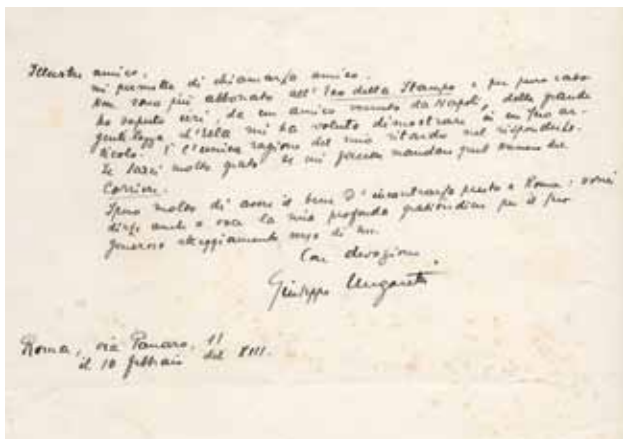 Illustre amico,
mi permetta di chiamarla amico.
Non sono più abbonato all'Eco della Stampa e per puro caso
ho saputo ieri, da un amico venuto da Napoli, della grande
gentilezza ch'Ella mi ha voluto dimostrare in un Suo ar-
ticolo. È l'unica ragione del mio ritardo nel risponderle.
Le sarei molto grato se mi facesse mandare quel numero del
Corriere.
Spero molto di avere il bene d'incontrarla presto a Roma: vorrei
dirle anche a voce la mia profonda gratitudine per il suo
generoso atteggiamento verso di me.
Con devozione,
Giuseppe Ungaretti
Roma, via Panaro, 11
il 10 febbraio del VIII.